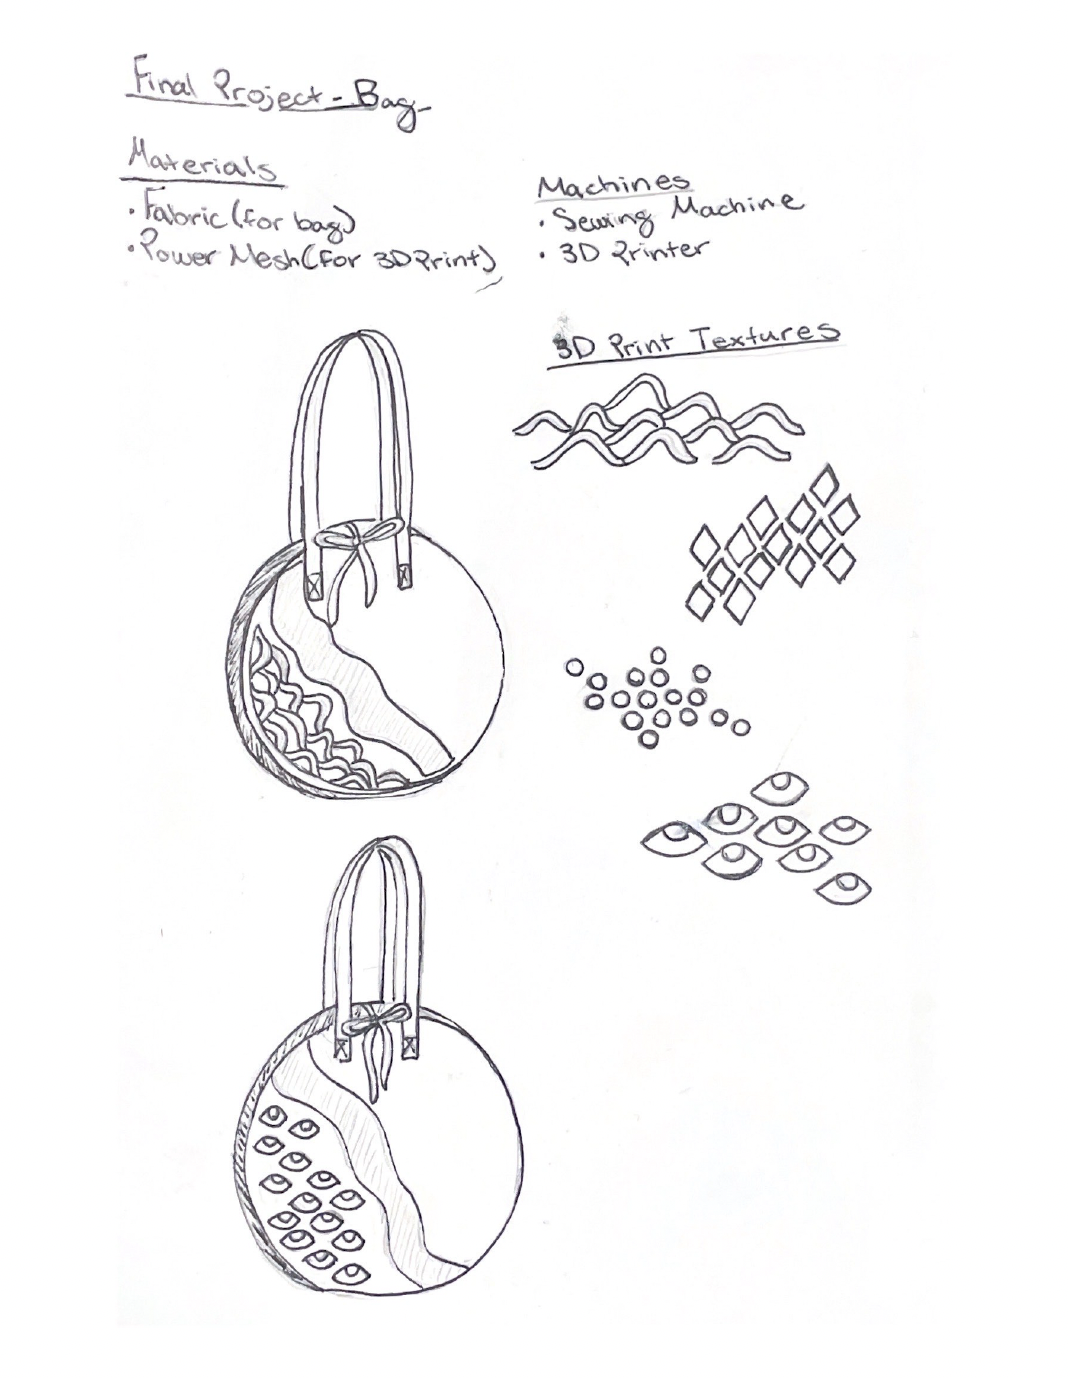 Final Project - Bag
Materials
· Fabric (for bag)
· Power Mesh (for 3D Print)
Machines
· Sewing Machine
· 3D Printer
3D Print Textures